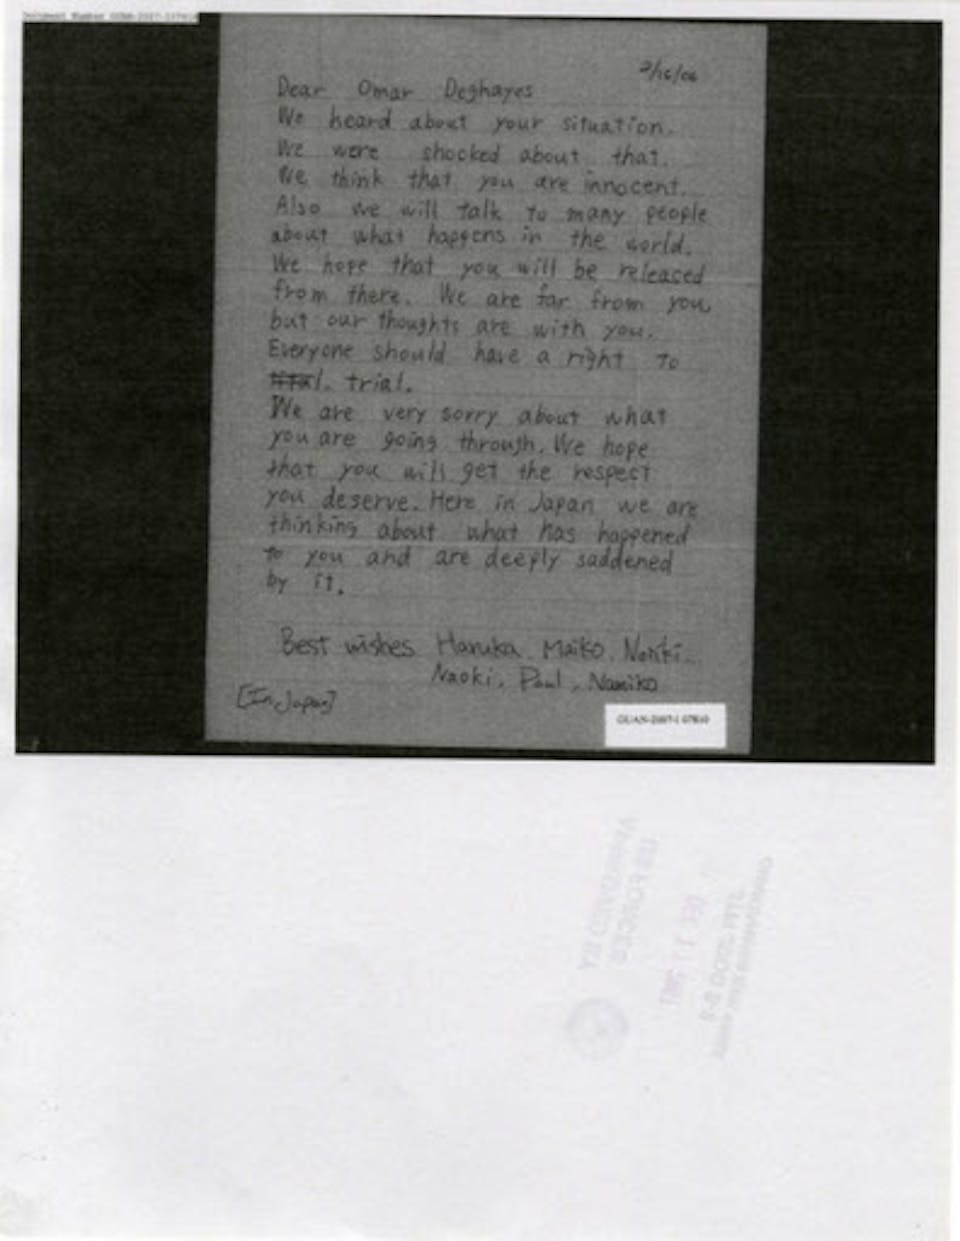 2/16/06
Dear Omar Deghayes
We heard about your situation.
We were shocked about that.
We think that you are innocent.
Also we will talk to many people
about what happens in the world.
We hope that you will be released
from there. We are far from you
but our thoughts are with you.
Everyone should have a right to
trial.
We are very sorry about what
you are going through. We hope
that you will get the respect
you deserve. Here in Japan we are
thinking about what has happened
to you and are deeply saddened
by it.
Best wishes Haruka, Maiko, Noriki..
Naoki, Paul, Namiko
[In Japan]
US FORCES
APPROVED BY